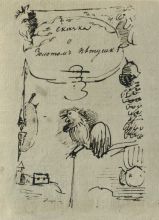 Сказка
о
Золотом Петушке.